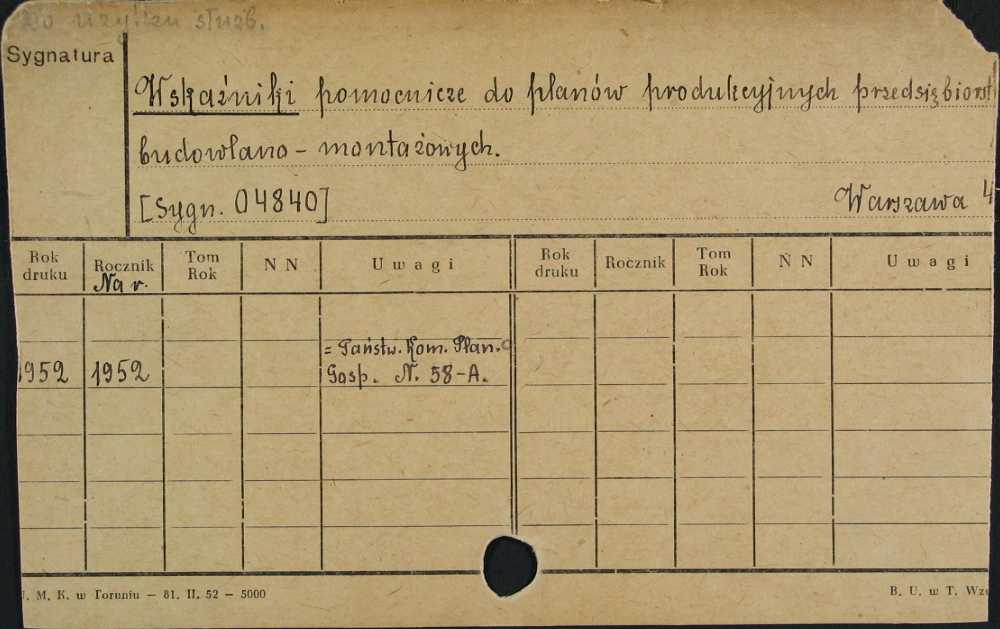 Do użytku służb.
Sygnatura
Wskaźniki pomocnicze do planów produkcyjnych przedsiębiorst
budowlano - montażowych.
[Sygn. 04840]
Warszawa 4
Rok druku
Rocznik
Na r.
Tom Rok
N N
Uwagi
Rok druku
Rocznik
Tom Rok
N N
Uwagi
1952 1952 = Państw. Kom. Plan.
Gosp. N. 58-A.
U. M. K. w Toruniu — 81. II. 52 — 5000
B. U. w T. Wzó